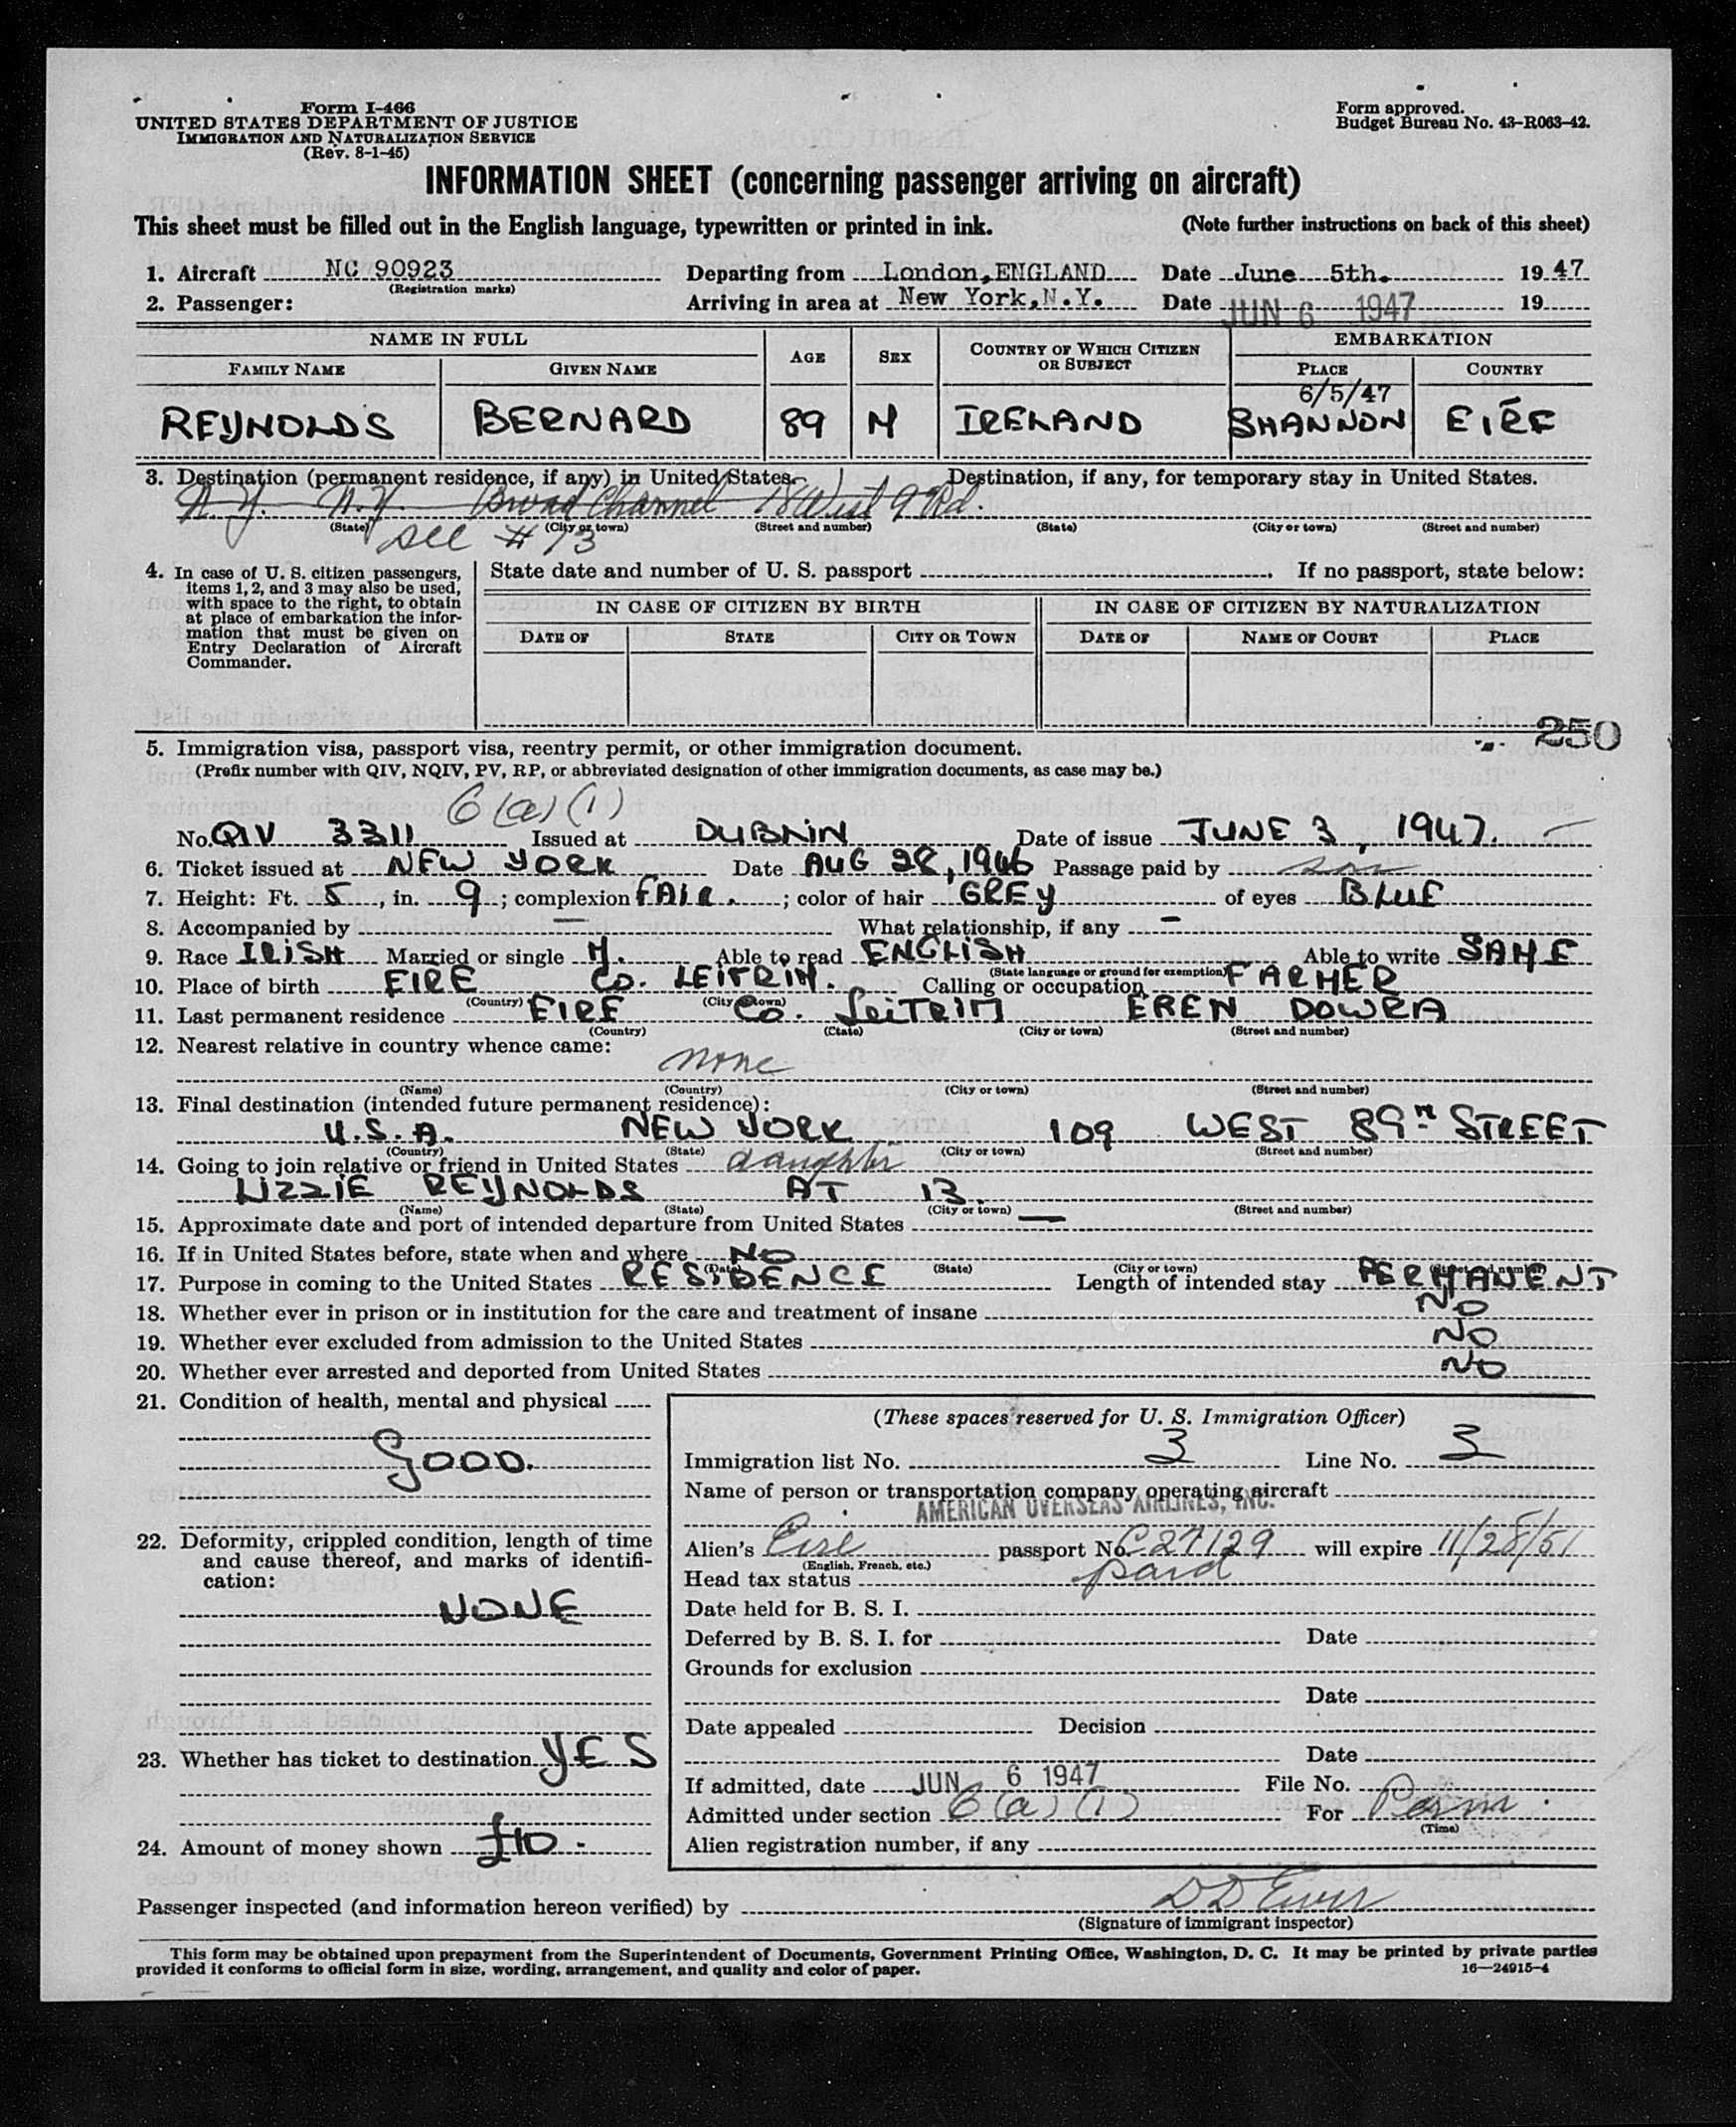 Form I-466
UNITED STATES DEPARTMENT OF JUSTICE
IMMIGRATION AND NATURALIZATION SERVICE
(Rev. 8-1-45)
Form approved.
Budget Bureau No. 43-R063-42.
INFORMATION SHEET (concerning passenger arriving on aircraft)
This sheet must be filled out in the English language, typewritten or printed in ink. (Note further instructions on back of this sheet)
1. Aircraft NC 90923 Departing from London, ENGLAND Date June 5th. 1947
(Registration marks)
2. Passenger: Arriving in area at New York, N.Y. Date JUN 6 1947 19
NAME IN FULL AGE SEX COUNTRY OF WHICH CITIZEN OR SUBJECT EMBARKATION
FAMILY NAME GIVEN NAME PLACE COUNTRY
6/5/47
REYNOLDS BERNARD 89 M IRELAND SHANNON EIRE
3. Destination (permanent residence, if any) in United States. Destination, if any, for temporary stay in United States.
N.Y. N.Y. Broad Channel 18 West 9 Rd.
(State) (City or town) (Street and number) (State) (City or town) (Street and number)
see #13
4. In case of U. S. citizen passengers, items 1, 2, and 3 may also be used, with space to the right, to obtain at place of embarkation the information that must be given on Entry Declaration of Aircraft Commander.
State date and number of U. S. passport . If no passport, state below:
IN CASE OF CITIZEN BY BIRTH IN CASE OF CITIZEN BY NATURALIZATION
DATE OF STATE CITY OR TOWN DATE OF NAME OF COURT PLACE
250
5. Immigration visa, passport visa, reentry permit, or other immigration document.
(Prefix number with QIV, NQIV, PV, RP, or abbreviated designation of other immigration documents, as case may be.)
6(a)(1)
No. QIV 3311 Issued at DUBLIN Date of issue JUNE 3, 1947.
6. Ticket issued at NEW YORK Date AUG 28, 1946 Passage paid by son
7. Height: Ft. 5, in. 9; complexion FAIR.; color of hair GREY of eyes BLUE
8. Accompanied by — What relationship, if any —
9. Race IRISH Married or single M. Able to read ENGLISH Able to write SAME
(State language or ground for exemption)
10. Place of birth EIRE CO. LEITRIM. Calling or occupation FARMER
(Country) (City or town)
11. Last permanent residence EIRE Co. LEITRIM EREN DOWRA
(Country) (State) (City or town) (Street and number)
12. Nearest relative in country whence came:
none
(Name) (Country) (City or town) (Street and number)
13. Final destination (intended future permanent residence):
U.S.A. NEW YORK 109 WEST 89TH STREET
(Country) (State) (City or town) (Street and number)
14. Going to join relative or friend in United States daughter
LIZZIE REYNOLDS AT 13.
(Name) (State) (City or town) (Street and number)
15. Approximate date and port of intended departure from United States —
16. If in United States before, state when and where NO
(Date) (State) (City or town) (Street and number)
17. Purpose in coming to the United States RESIDENCE Length of intended stay PERMANENT
18. Whether ever in prison or in institution for the care and treatment of insane NO
19. Whether ever excluded from admission to the United States NO
20. Whether ever arrested and deported from United States NO
21. Condition of health, mental and physical
GOOD.
22. Deformity, crippled condition, length of time and cause thereof, and marks of identification:
NONE
23. Whether has ticket to destination YES
24. Amount of money shown £10-
(These spaces reserved for U. S. Immigration Officer)
Immigration list No. 3 Line No. 3
Name of person or transportation company operating aircraft
AMERICAN OVERSEAS AIRLINES, INC.
Alien's Eire passport No. C27129 will expire 11/28/51
(English, French, etc.)
Head tax status paid
Date held for B. S. I.
Deferred by B. S. I. for Date
Grounds for exclusion
Date
Date appealed Decision
Date
If admitted, date JUN 6 1947 File No.
Admitted under section 6(a)(1) For Perm.
(Time)
Alien registration number, if any
Passenger inspected (and information hereon verified) by
(Signature of immigrant inspector)
This form may be obtained upon prepayment from the Superintendent of Documents, Government Printing Office, Washington, D. C. It may be printed by private parties
provided it conforms to official form in size, wording, arrangement, and quality and color of paper. 16—24915-4